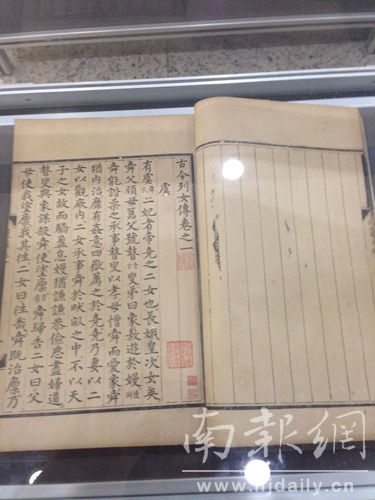 古今列女傳卷之一
虞
有虞二妃者帝堯之二女也長娥皇次女英
舜父頑母嚚父號瞽叟弟曰象敖遊於嫚
舜能諧柔之承事瞽叟以孝母憎舜而愛象舜
猶内治靡有姦意四嶽薦之於堯堯乃妻以二
女以觀厥内二女承事舜於畎畝之中不以天
子之女故而驕盈怠嫚猶謙謙恭儉思盡婦道
瞽叟與象謀殺舜使塗廩舜歸告二女曰父
母使我塗廩我其往二女曰往哉舜既治廩乃
南報網
www.njdaily.cn